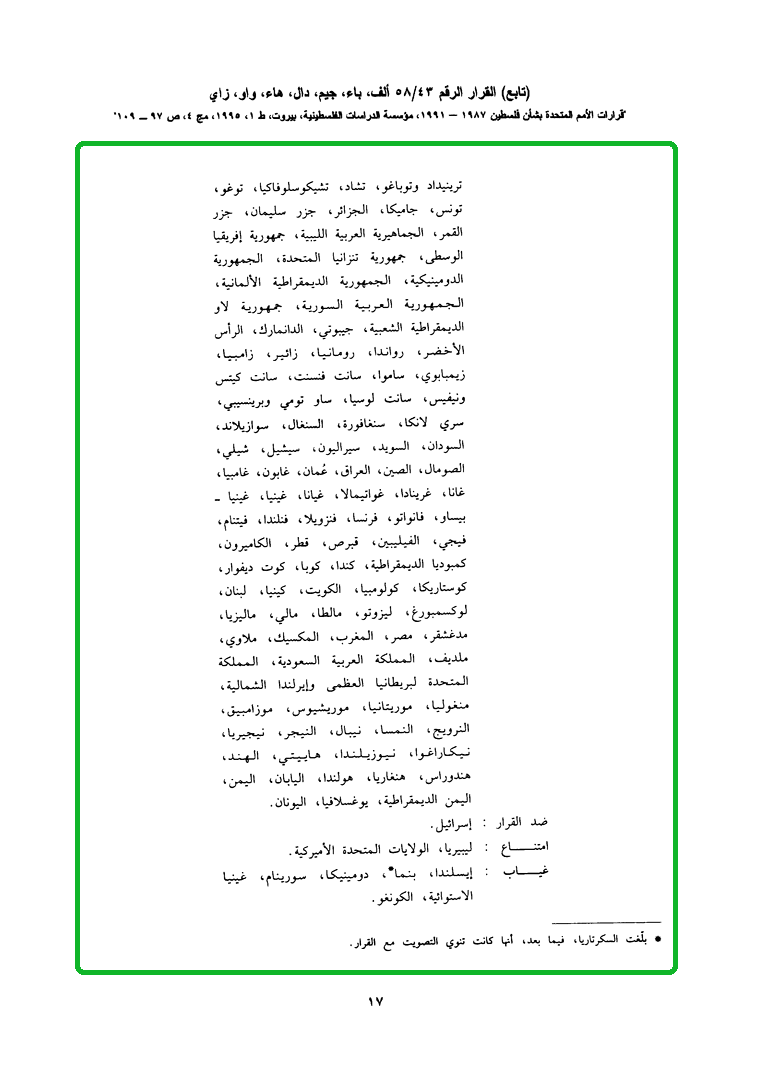 (تابع) القرار الرقم ٥٨/٤٣ ألف، باء، جيم، دال، هاء، واو، زاي
"قرارات الأمم المتحدة بشأن فلسطين ١٩٨٧ – ١٩٩١، مؤسسة الدراسات الفلسطينية، بيروت، ط ١، ١٩٩٥، مج ٤، ص ٩٧ – ١٠٩"
ترينيداد وتوباغو، تشاد، تشيكوسلوفاكيا، توغو،
تونس، جاميكا، الجزائر، جزر سليمان، جزر
القمر، الجماهيرية العربية الليبية، جمهورية إفريقيا
الوسطى، جمهورية تنزانيا المتحدة، الجمهورية
الدومينيكية، الجمهورية الديمقراطية الألمانية،
الجمهورية العربية السورية، جمهورية لاو
الديمقراطية الشعبية، جيبوتي، الدانمارك، الرأس
الأخضر، رواندا، رومانيا، زائير، زامبيا،
زيمبابوي، ساموا، سانت فنسنت، سانت كيتس
ونيفيس، سانت لوسيا، ساو تومي وبرينسيبي،
سري لانكا، سنغافورة، السنغال، سوازيلاند،
السودان، السويد، سيراليون، سيشيل، شيلي،
الصومال، الصين، العراق، عُمان، غابون، غامبيا،
غانا، غرينادا، غواتيمالا، غيانا، غينيا، غينيا ـ
بيساو، فانواتو، فرنسا، فنزويلا، فنلندا، فيتنام،
فيجي، الفيليبين، قبرص، قطر، الكاميرون،
كمبوديا الديمقراطية، كندا، كوبا، كوت ديفوار،
كوستاريكا، كولومبيا، الكويت، كينيا، لبنان،
لوكسمبورغ، ليزوتو، مالطا، مالي، ماليزيا،
مدغشقر، مصر، المغرب، المكسيك، ملاوي،
ملديف، المملكة العربية السعودية، المملكة
المتحدة لبريطانيا العظمى وإيرلندا الشمالية،
منغوليا، موريتانيا، موريشيوس، موزامبيق،
النرويج، النمسا، نيبال، النيجر، نيجيريا،
نيكاراغوا، نيوزيلندا، هاييتي، الهند،
هندوراس، هنغاريا، هولندا، اليابان، اليمن،
اليمن الديمقراطية، يوغسلافيا، اليونان.
ضد القرار : إسرائيل.
امتنـــــاع : ليبيريا، الولايات المتحدة الأميركية.
غيـــــاب : إيسلندا، بنما*، دومينيكا، سورينام، غينيا
الاستوائية، الكونغو.
● بلّغت السكرتاريا، فيما بعد، أنها كانت تنوي التصويت مع القرار.
١٧